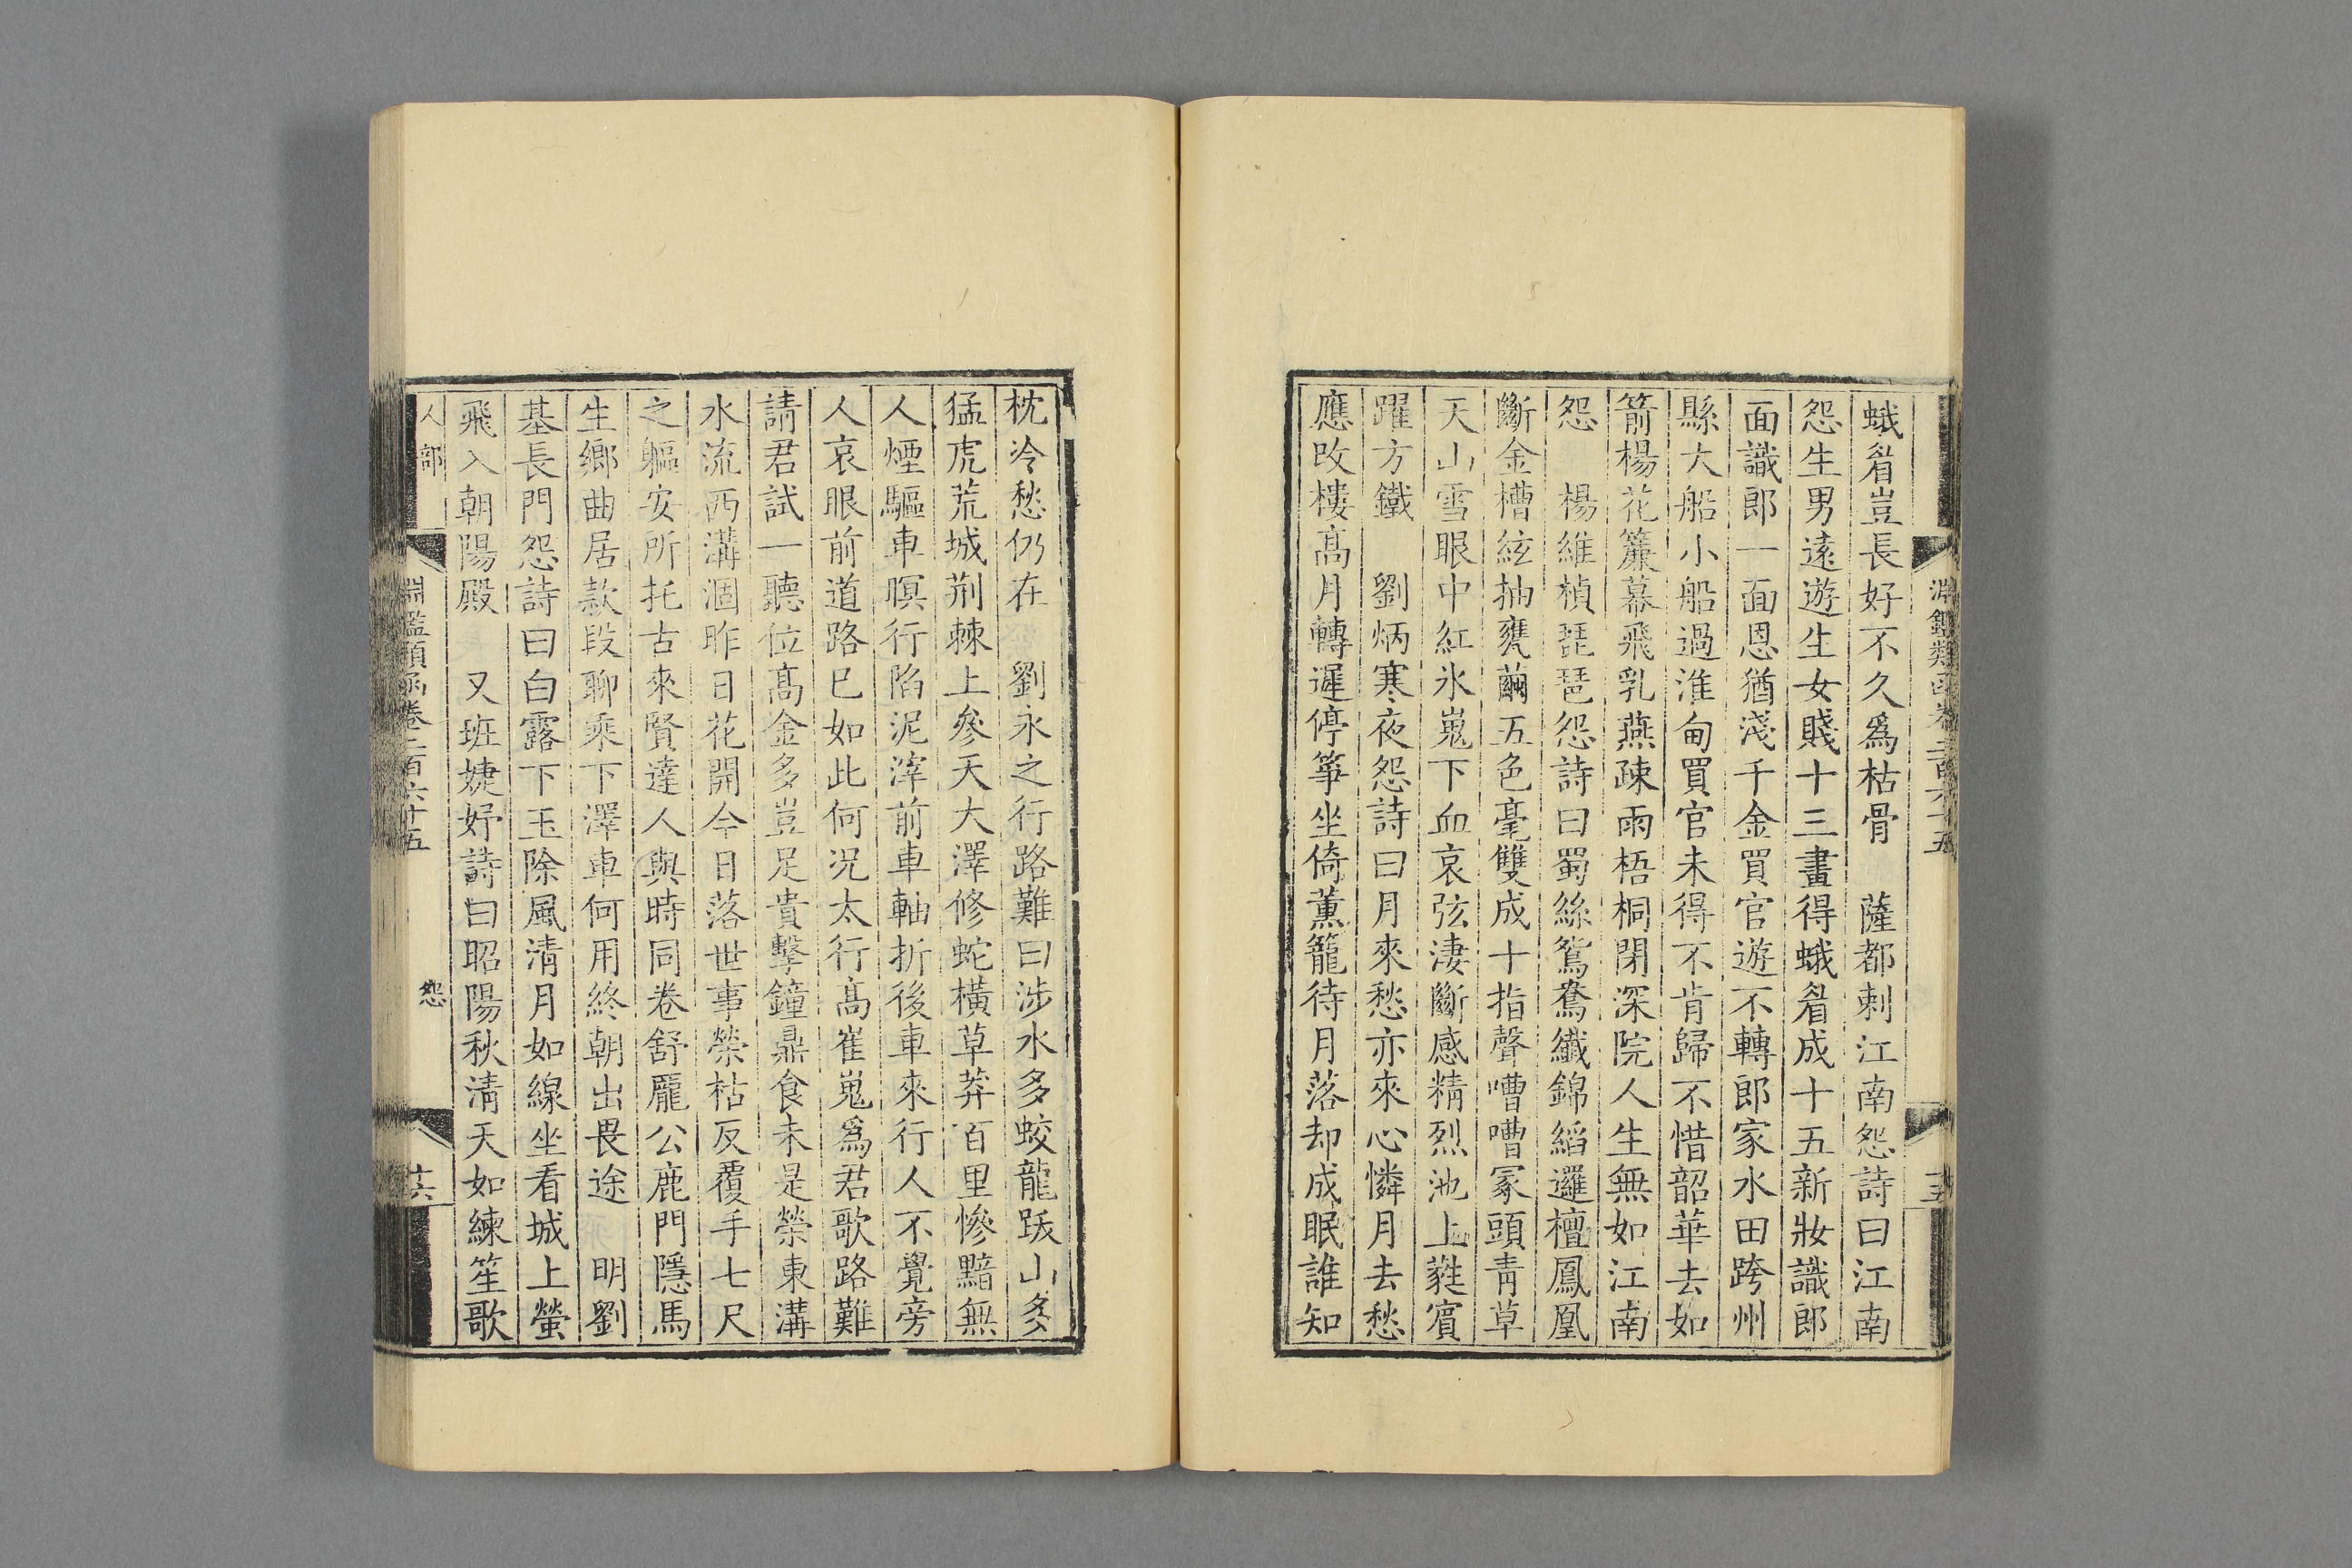 淵鑑類函卷二百六十五
十五
蛾眉豈長好不久爲枯骨　薩都剌江南怨詩曰江南
怨生男遠遊生女賤十三畫得蛾眉成十五新妝識郎
面識郎一面恩猶淺千金買官遊不轉郎家水田跨州
縣大船小船過淮甸買官未得不肯歸不惜韶華去如
箭楊花簾幕飛乳燕疎雨梧桐閉深院人生無如江南
怨　楊維楨琵琶怨詩曰蜀絲鴛鴦織錦縚邏檀鳳凰
斷金槽絃抽甕繭五色毫雙成十指聲嘈嘈冡頭青草
天山雪眼中紅氷嵬下血哀弦淒斷感精烈池上蕤賓
躍方鐵　劉炳寒夜怨詩曰月來愁亦來心憐月去愁
應改樓高月轉遲停箏坐倚薰籠待月落却成眠誰知
枕冷愁仍在　劉永之行路難曰涉水多蛟龍跋山多
猛虎荒城荆棘上參天大澤修蛇橫草莽百里慘黯無
人煙驅車暝行陷泥滓前車軸折後車來行人不覺旁
人哀眼前道路已如此何況太行高崔嵬爲君歌路難
請君試一聽位高金多豈足貴擊鐘鼎食未是榮東溝
水流西溝涸昨日花開今日落世事榮枯反覆手七尺
之軀安所托古來賢達人與時同卷舒龐公鹿門隱馬
生鄉曲居款段聊乘下澤車何用終朝出畏途　明劉
基長門怨詩曰白露下玉除風清月如線坐看城上螢
飛入朝陽殿　又班婕妤詩曰昭陽秋清天如練笙歌
人部
淵鑑類函卷二百六十五
怨
十六